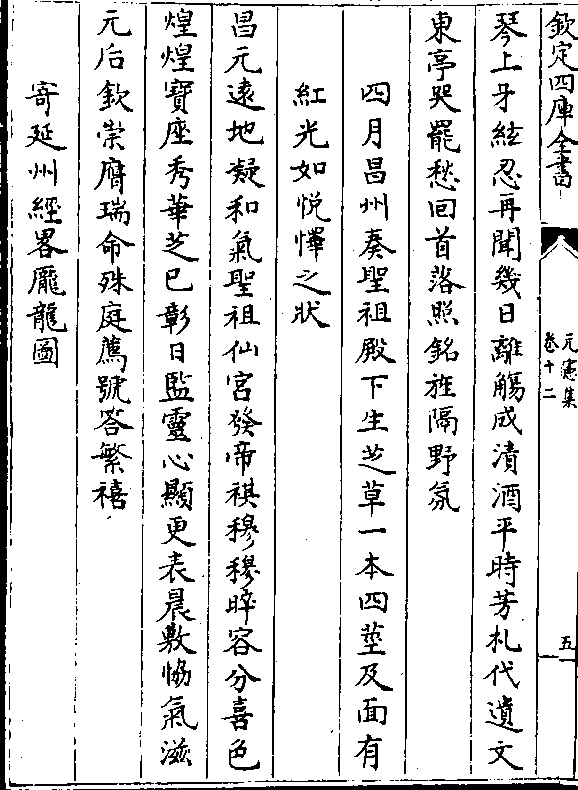 欽定四庫全書
元憲集
卷十二
五
琴上牙絃忍再聞幾日離觴成漬酒平時芳札代遺文
東亭哭罷愁回首落照銘旌隔野氛
四月昌州奏聖祖殿下生芝草一本四莖及面有
紅光如悅懌之狀
昌元遠地凝和氣聖祖仙宮發帝祺穆穆睟容分喜色
煌煌寶座秀華芝已彰日監靈心顯更表晨敷協氣滋
元后欽崇膺瑞命殊庭薦號答繁禧
寄延州經畧龎龍圖